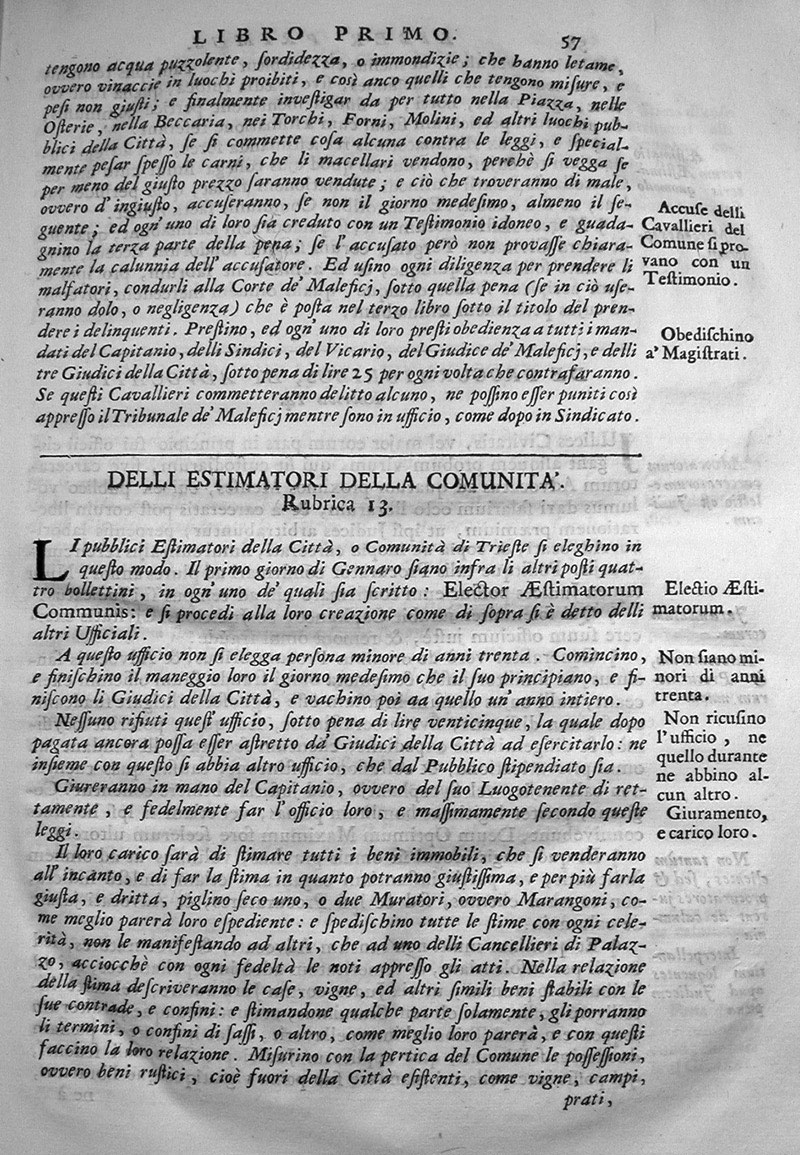 LIBRO PRIMO.
57
tengono acqua puzzolente, ſordidezza, o immondizie; che hanno letame,
ovvero vinaccie in luochi proibiti, e così anco quelli che tengono miſure, e
peſi non giuſti; e finalmente inveſtigar da per tutto nella Piazza, nelle
Oſterie, nella Beccaria, nei Torchi, Forni, Molini, ed altri luochi pub-
blici della Città, ſe ſi commette coſa alcuna contra le leggi, e ſpecial-
mente peſar ſpeſſo le carni, che li macellari vendono, perchè ſi vegga ſe
per meno del giuſto prezzo ſaranno vendute; e ciò che troveranno di male,
ovvero d'ingiuſto, accuſeranno, ſe non il giorno medeſimo, almeno il ſe-
guente; ed ogn'uno di loro ſia creduto con un Teſtimonio idoneo, e guada-
gnino la terza parte della pena; ſe l'accuſato però non provaſſe chiara-
mente la calunnia dell'accuſatore. Ed uſino ogni diligenza per prendere li
malfatori, condurli alla Corte de' Maleficj, ſotto quella pena (ſe in ciò uſe-
ranno dolo, o negligenza) che è poſta nel terzo libro ſotto il titolo del pren-
dere i delinquenti. Preſtino, ed ogn'uno di loro preſti obedienza a tutti i man-
dati del Capitanio, delli Sindici, del Vicario, del Giudice de' Maleficj, e delli
tre Giudici della Città, ſotto pena di lire 25 per ogni volta che contrafaranno.
Se queſti Cavallieri commetteranno delitto alcuno, ne poſſino eſſer puniti così
appreſſo il Tribunale de' Maleficj mentre ſono in ufficio, come dopo in Sindicato.
Accuſe delli
Cavallieri del
Comune ſi pro-
vano con un
Teſtimonio.
Obediſchino
a' Magiſtrati.
DELLI ESTIMATORI DELLA COMUNITA'.
Rubrica 13.
LI pubblici Eſtimatori della Città, o Comunità di Trieſte ſi eleghino in
queſto modo. Il primo giorno di Gennaro ſiano infra li altri poſti quat-
tro bollettini, in ogn'uno de' quali ſia ſcritto: Elector Æſtimatorum
Communis: e ſi procedi alla loro creazione come di ſopra ſi è detto delli
altri Ufficiali.
A queſto ufficio non ſi elegga perſona minore di anni trenta. Comincino,
e finiſchino il maneggio loro il giorno medeſimo che il ſuo principiano, e fi-
niſcono li Giudici della Città, e vachino poi aa quello un'anno intiero.
Neſſuno rifiuti queſt'ufficio, ſotto pena di lire venticinque, la quale dopo
pagata ancora poſſa eſſer aſtretto da' Giudici della Città ad eſercitarlo: ne
inſieme con queſto ſi abbia altro ufficio, che dal Pubblico ſtipendiato ſia.
Giureranno in mano del Capitanio, ovvero del ſuo Luogotenente di ret-
tamente, e fedelmente far l'officio loro, e maſſimamente ſecondo queſte
leggi.
Il loro carico ſarà di ſtimare tutti i beni immobili, che ſi venderanno
all'incanto, e di far la ſtima in quanto potranno giuſtiſſima, e per più farla
giuſta, e dritta, piglino ſeco uno, o due Muratori, ovvero Marangoni, co-
me meglio parerà loro eſpediente: e ſpediſchino tutte le ſtime con ogni cele-
rità, non le manifeſtando ad altri, che ad uno delli Cancellieri di Palaz-
zo, acciocchè con ogni fedeltà le noti appreſſo gli atti. Nella relazione
della ſtima deſcriveranno le caſe, vigne, ed altri ſimili beni ſtabili con le
ſue contrade, e confini: e ſtimandone qualche parte ſolamente, gli porranno
li termini, o confini di ſaſſi, o altro, come meglio loro parerà, e con queſti
faccino la loro relazione. Miſurino con la pertica del Comune le poſſeſſioni,
ovvero beni ruſtici, cioè fuori della Città eſiſtenti, come vigne, campi,
prati,
Electio Æſti-
matorum.
Non ſiano mi-
nori di anni
trenta.
Non ricuſino
l'ufficio, ne
quello durante
ne abbino al-
cun altro.
Giuramento,
e carico loro.